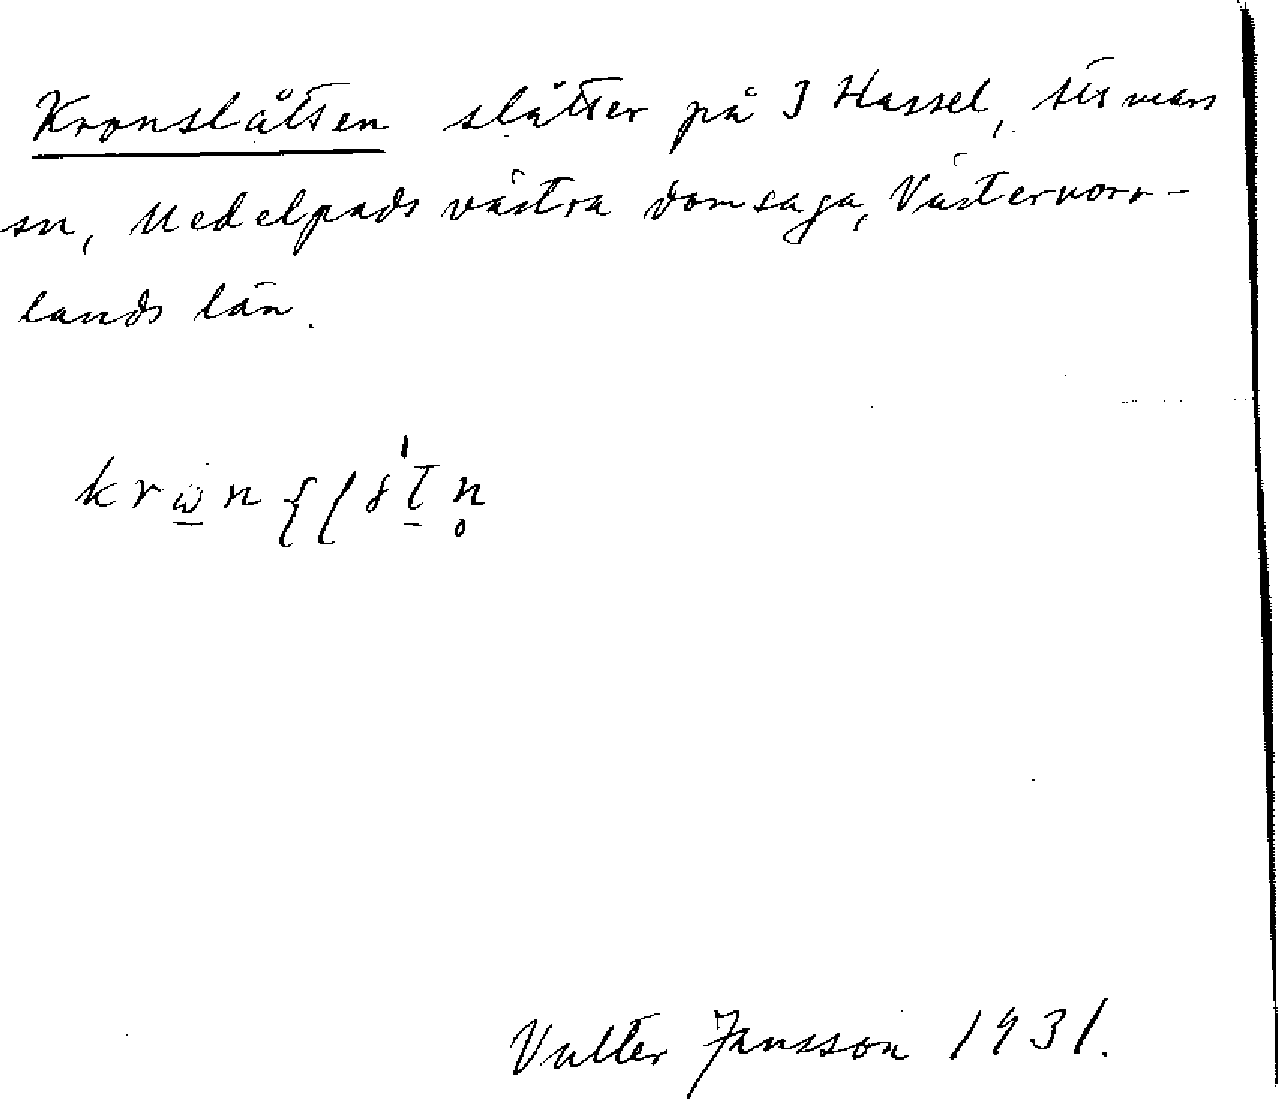 Kronslåtten slåtter på I Hassel,
sn, Medelpads västra domsaga, Västernorr-
lands län.
Valter Jansson 1931.